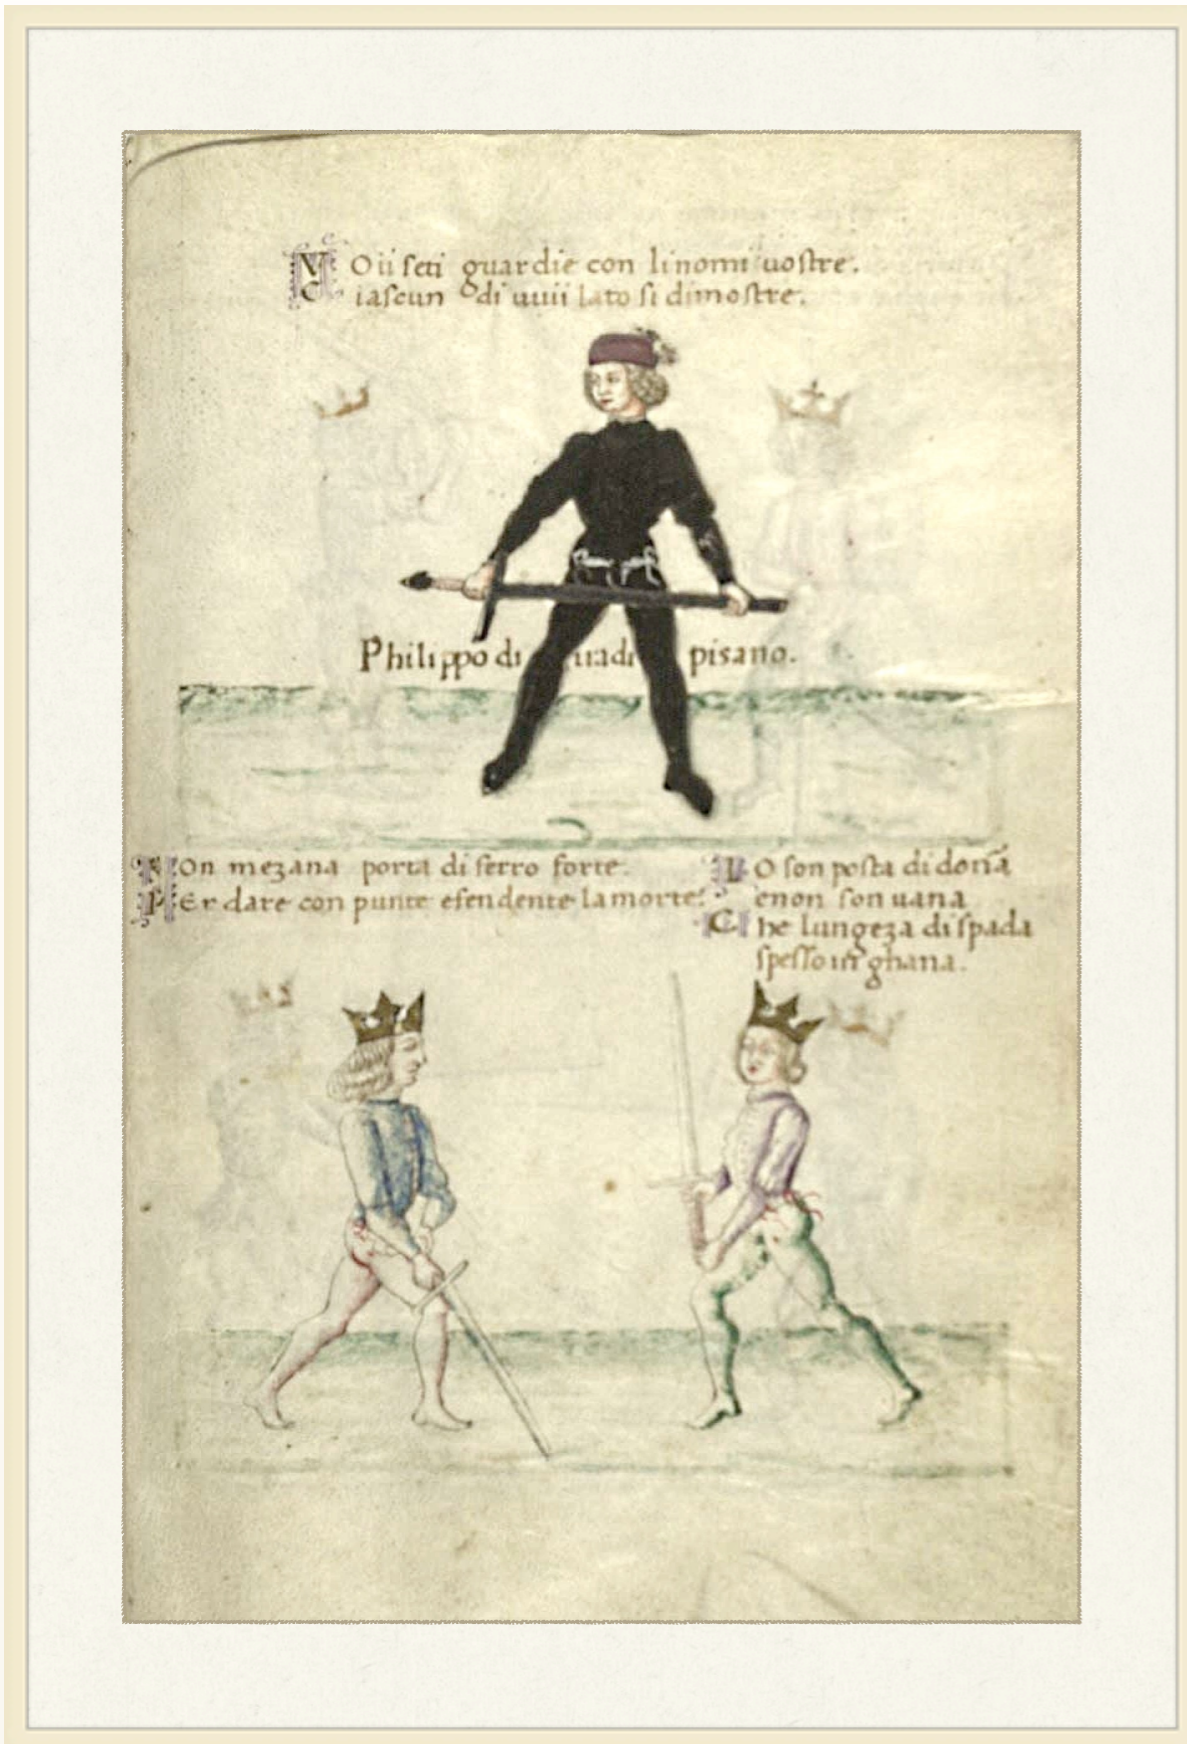 VOii seti guardie con li nomi uostre.
Ciascun di uuii lato si dimostre.
Philippo di uadi pisano.
SOn mezana porta di ferro forte.
PEr dare con punte e fendente la morte.
IO son posta di dona
e non son uana
Che lungeza di spada
spesso in ghana.